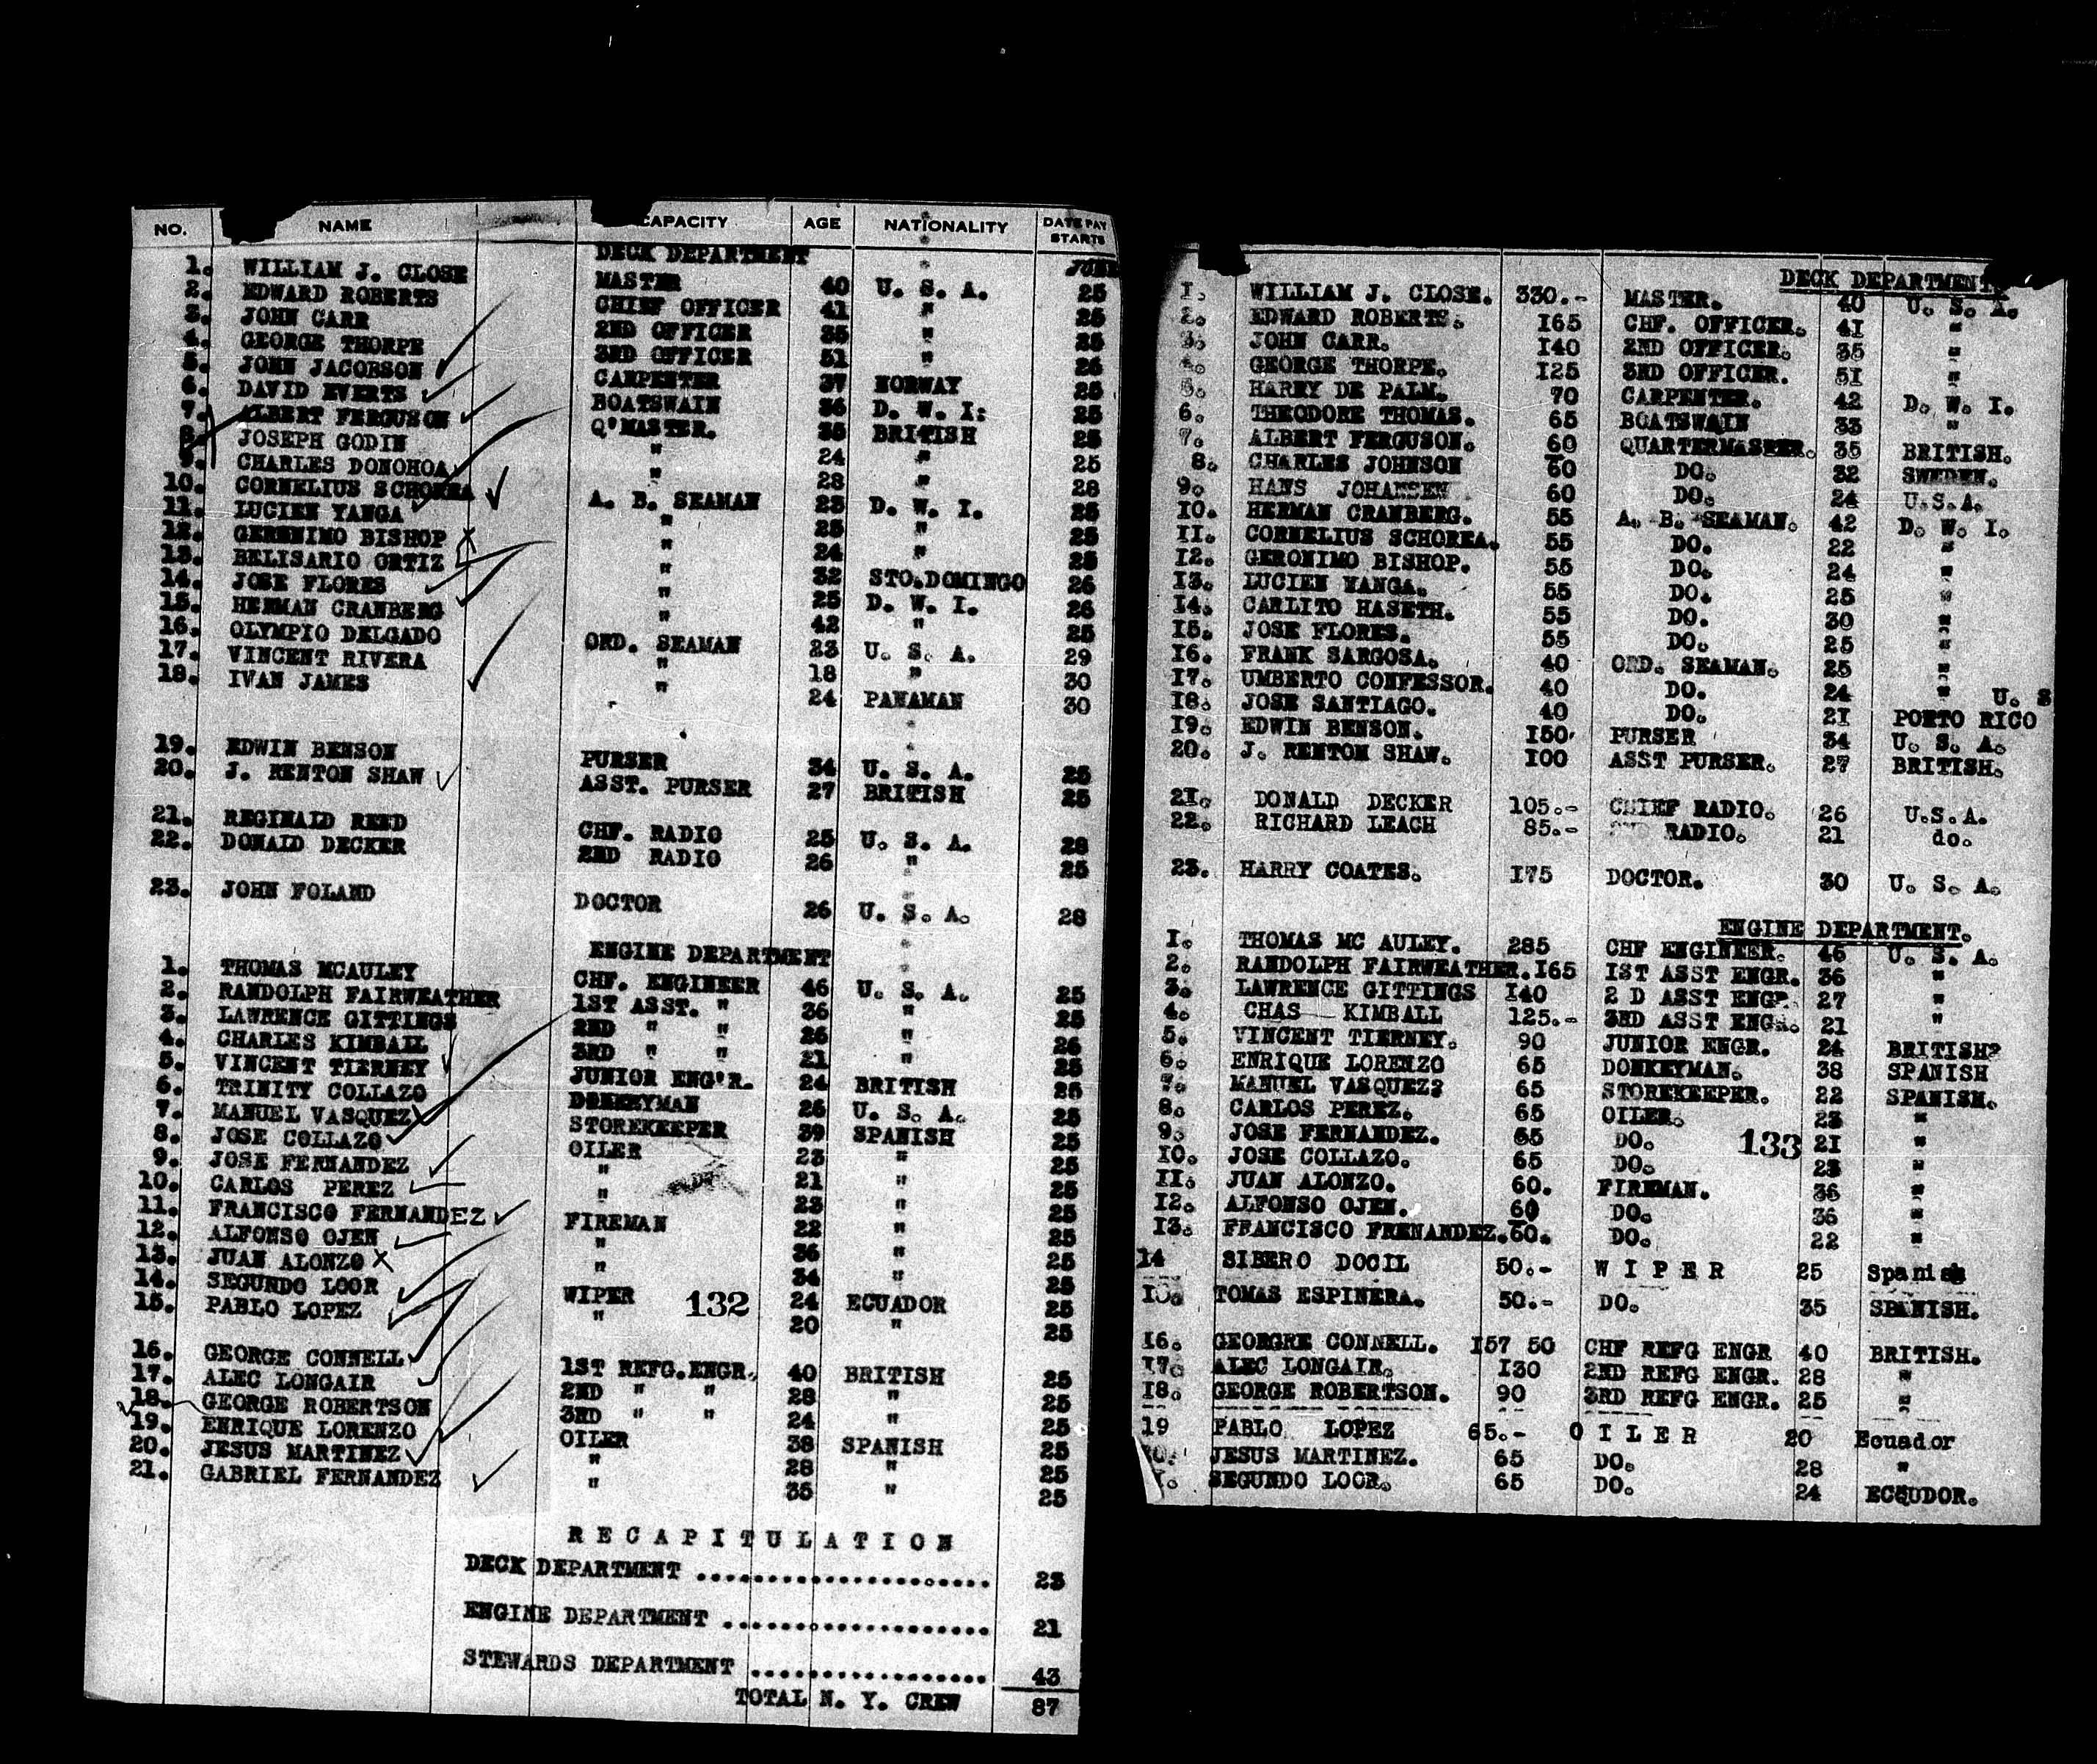 NO. NAME CAPACITY AGE NATIONALITY DATE PAY STARTS
DECK DEPARTMENT JUNE
1. WILLIAM J. CLOSE MASTER 40 U. S. A. 25
2. EDWARD ROBERTS CHIEF OFFICER 41 " 25
3. JOHN CARR 2ND OFFICER 35 " 25
4. GEORGE THORPE 3RD OFFICER 51 " 26
5. JOHN JACOBSON CARPENTER 37 NORWAY 25
6. DAVID EVERTS BOATSWAIN 36 D. W. I: 25
7. ALBERT FERGUSON Q'MASTER. 35 BRITISH 25
8. JOSEPH GODIN " 24 " 25
9. CHARLES DONOHOA " 28 " 28
10. CORNELIUS SCHOREA A. B. SEAMAN 23 D. W. I. 25
11. LUCIEN YANGA " 25 " 25
12. GERONIMO BISHOP " 24 " 25
13. BELISARIO ORTIZ " 32 STO.DOMINGO 26
14. JOSE FLORES " 25 D. W. I. 26
15. HERMAN CRANBERG " 42 " 25
16. OLYMPIO DELGADO ORD. SEAMAN 23 U. S. A. 29
17. VINCENT RIVERA " 18 " 30
18. IVAN JAMES " 24 PANAMAN 30
19. EDWIN BENSON PURSER 34 U. S. A. 25
20. J. RENTON SHAW ASST. PURSER 27 BRITISH 25
21. REGINALD REED CHF. RADIO 25 U. S. A. 28
22. DONALD DECKER 2ND RADIO 26 " 25
23. JOHN FOLAND DOCTOR 26 U. S. A. 28
ENGINE DEPARTMENT
1. THOMAS MCAULEY CHF. ENGINEER 46 U. S. A. 25
2. RANDOLPH FAIRWEATHER 1ST ASST. " 36 " 25
3. LAWRENCE GITTINGS 2ND " " 26 " 26
4. CHARLES KIMBALL 3RD " " 21 " 25
5. VINCENT TIERNEY JUNIOR ENG'R. 24 BRITISH 25
6. TRINITY COLLAZO DONKEYMAN 26 U. S. A. 25
7. MANUEL VASQUEZ STOREKEEPER 39 SPANISH 25
8. JOSE COLLAZO OILER 23 " 25
9. JOSE FERNANDEZ " 21 " 25
10. CARLOS PEREZ " 23 " 25
11. FRANCISCO FERNANDEZ FIREMAN 22 " 25
12. ALFONSO OJEN " 36 " 25
13. JUAN ALONZO " 34 " 25
14. SEGUNDO LOOR WIPER 132 24 ECUADOR 25
15. PABLO LOPEZ " 20 " 25
16. GEORGE CONNELL 1ST REFG.ENGR. 40 BRITISH 25
17. ALEC LONGAIR 2ND " " 28 " 25
18. GEORGE ROBERTSON 3RD " " 24 " 25
19. ENRIQUE LORENZO OILER 38 SPANISH 25
20. JESUS MARTINEZ " 28 " 25
21. GABRIEL FERNANDEZ " 35 " 25
R E C A P I T U L A T I O N
DECK DEPARTMENT ..................... 23
ENGINE DEPARTMENT ................... 21
STEWARDS DEPARTMENT ................. 43
TOTAL N. Y. CREW 87
DECK DEPARTMENT.
1. WILLIAM J. CLOSE. 330.- MASTER. 40 U. S. A.
2. EDWARD ROBERTS. 165 CHF. OFFICER. 41 "
3. JOHN CARR. 140 2ND OFFICER. 35 "
4. GEORGE THORPE. 125 3RD OFFICER. 51 "
5. HARRY DE PALM. 70 CARPENTER. 42 D. W. I.
6. THEODORE THOMAS. 65 BOATSWAIN 33 "
7. ALBERT FERGUSON. 60 QUARTERMASTER. 35 BRITISH.
8. CHARLES JOHNSON 60 DO. 32 SWEDEN.
9. HANS JOHANSEN 60 DO. 24 U.S.A.
10. HERMAN CRANBERG. 55 A. B. SEAMAN. 42 D. W. I.
11. CORNELIUS SCHOREA. 55 DO. 22 "
12. GERONIMO BISHOP. 55 DO. 24 "
13. LUCIEN YANGA. 55 DO. 25 "
14. CARLITO HASETH. 55 DO. 30 "
15. JOSE FLORES. 55 DO. 25 "
16. FRANK SARGOSA. 40 ORD. SEAMAN. 25 "
17. UMBERTO CONFESSOR. 40 DO. 24 " U. S
18. JOSE SANTIAGO. 40 DO. 21 PORTO RICO
19. EDWIN BENSON. 150 PURSER 34 U. S. A.
20. J. RENTON SHAW. 100 ASST PURSER. 27 BRITISH.
21. DONALD DECKER 105.- CHIEF RADIO. 26 U.S.A.
22. RICHARD LEACH 85.- RADIO. 21 do.
23. HARRY COATES. 175 DOCTOR. 30 U. S. A.
ENGINE DEPARTMENT.
1. THOMAS MC AULEY. 285 CHF ENGINEER. 46 U. S. A.
2. RANDOLPH FAIRWEATHER. 165 1ST ASST ENGR. 36 "
3. LAWRENCE GITTINGS 140 2 D ASST ENGR. 27 "
4. CHAS KIMBALL 125.- 3RD ASST ENGR. 21 "
5. VINCENT TIERNEY. 90 JUNIOR ENGR. 24 BRITISH?
6. ENRIQUE LORENZO 65 DONKEYMAN. 38 SPANISH
7. MANUEL VASQUEZ? 65 STOREKEEPER. 22 SPANISH.
8. CARLOS PEREZ. 65 OILER. 23 "
9. JOSE FERNANDEZ. 65 DO. 133 21 "
10. JOSE COLLAZO. 65 DO. 23 "
11. JUAN ALONZO. 60. FIREMAN. 36 "
12. ALFONSO OJEN. 60 DO. 36 "
13. FRANCISCO FRENANDEZ. 60. DO. 22 "
14 SIBERO DOCIL 50.- W I P E R 25 Spanish
15. TOMAS ESPINERA. 50.- DO. 35 SPANISH.
16. GEORGRE CONNELL. 157 50 CHF REFG ENGR 40 BRITISH.
17. ALEC LONGAIR. 130 2ND REFG ENGR. 28 "
18. GEORGE ROBERTSON. 90 3RD REFG ENGR. 25 "
19 PABLO LOPEZ 65.- O I L E R 20 Ecuador
0. JESUS MARTINEZ. 65 DO. 28 "
1. SEGUNDO LOOR. 65 DO. 24 ECQUDOR.